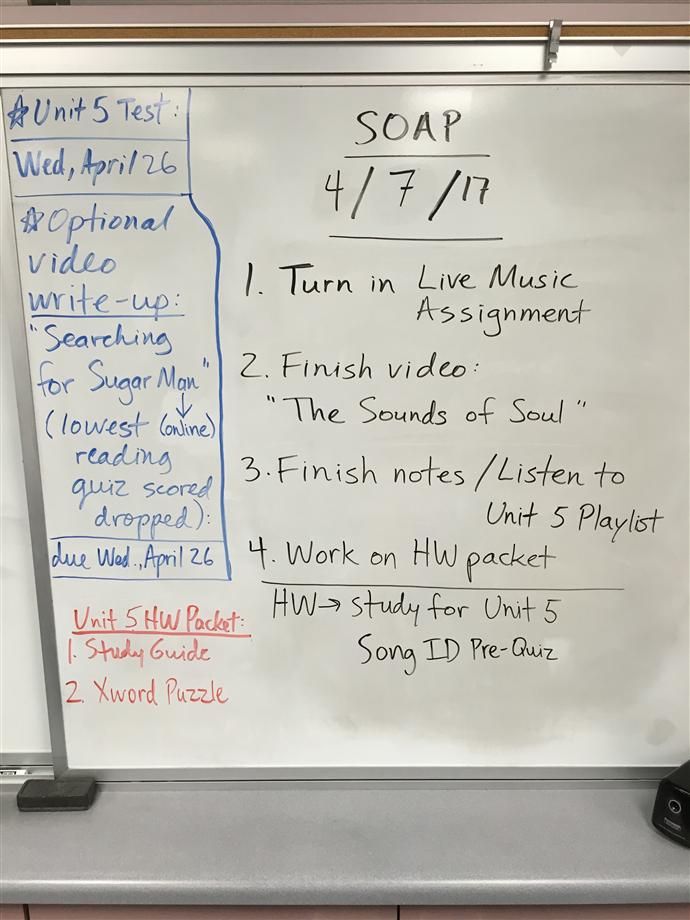 ☆Unit 5 Test:
Wed, April 26
☆Optional
video
write-up:
"Searching
for Sugar Man"
(lowest (online)
reading
quiz scored
dropped):
due Wed., April 26
Unit 5 HW Packet:
1. Study Guide
2. Xword Puzzle
SOAP
4/7/17
1. Turn in Live Music
Assignment
2. Finish video:
"The Sounds of Soul"
3. Finish notes/Listen to
Unit 5 Playlist
4. Work on HW packet
HW→ Study for Unit 5
Song ID Pre-Quiz